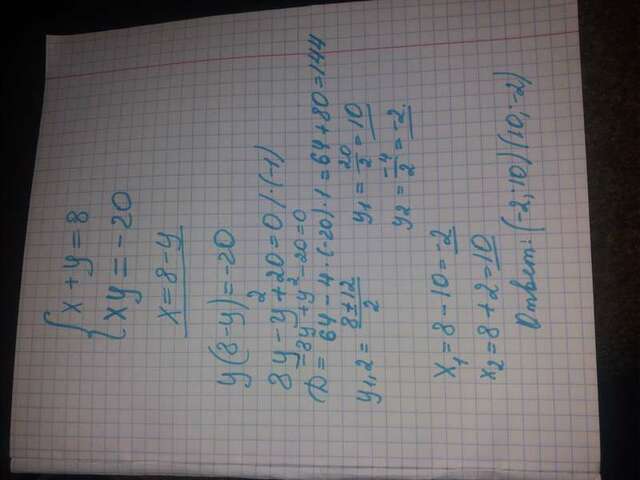 x + y = 8
xy = -20
x = 8 - y
y(8-y) = -20
8y - y² + 20 = 0 / · (-1)
-8y + y² - 20 = 0
D = 64 - 4 · (-20) · 1 = 64 + 80 = 144
y1,2 = 8±12/2 y1 = 20/2 = 10
y2 = -4/2 = -2.
x1 = 8 - 10 = -2
x2 = 8 + 2 = 10
Ответ: (-2; 10) (10; -2)